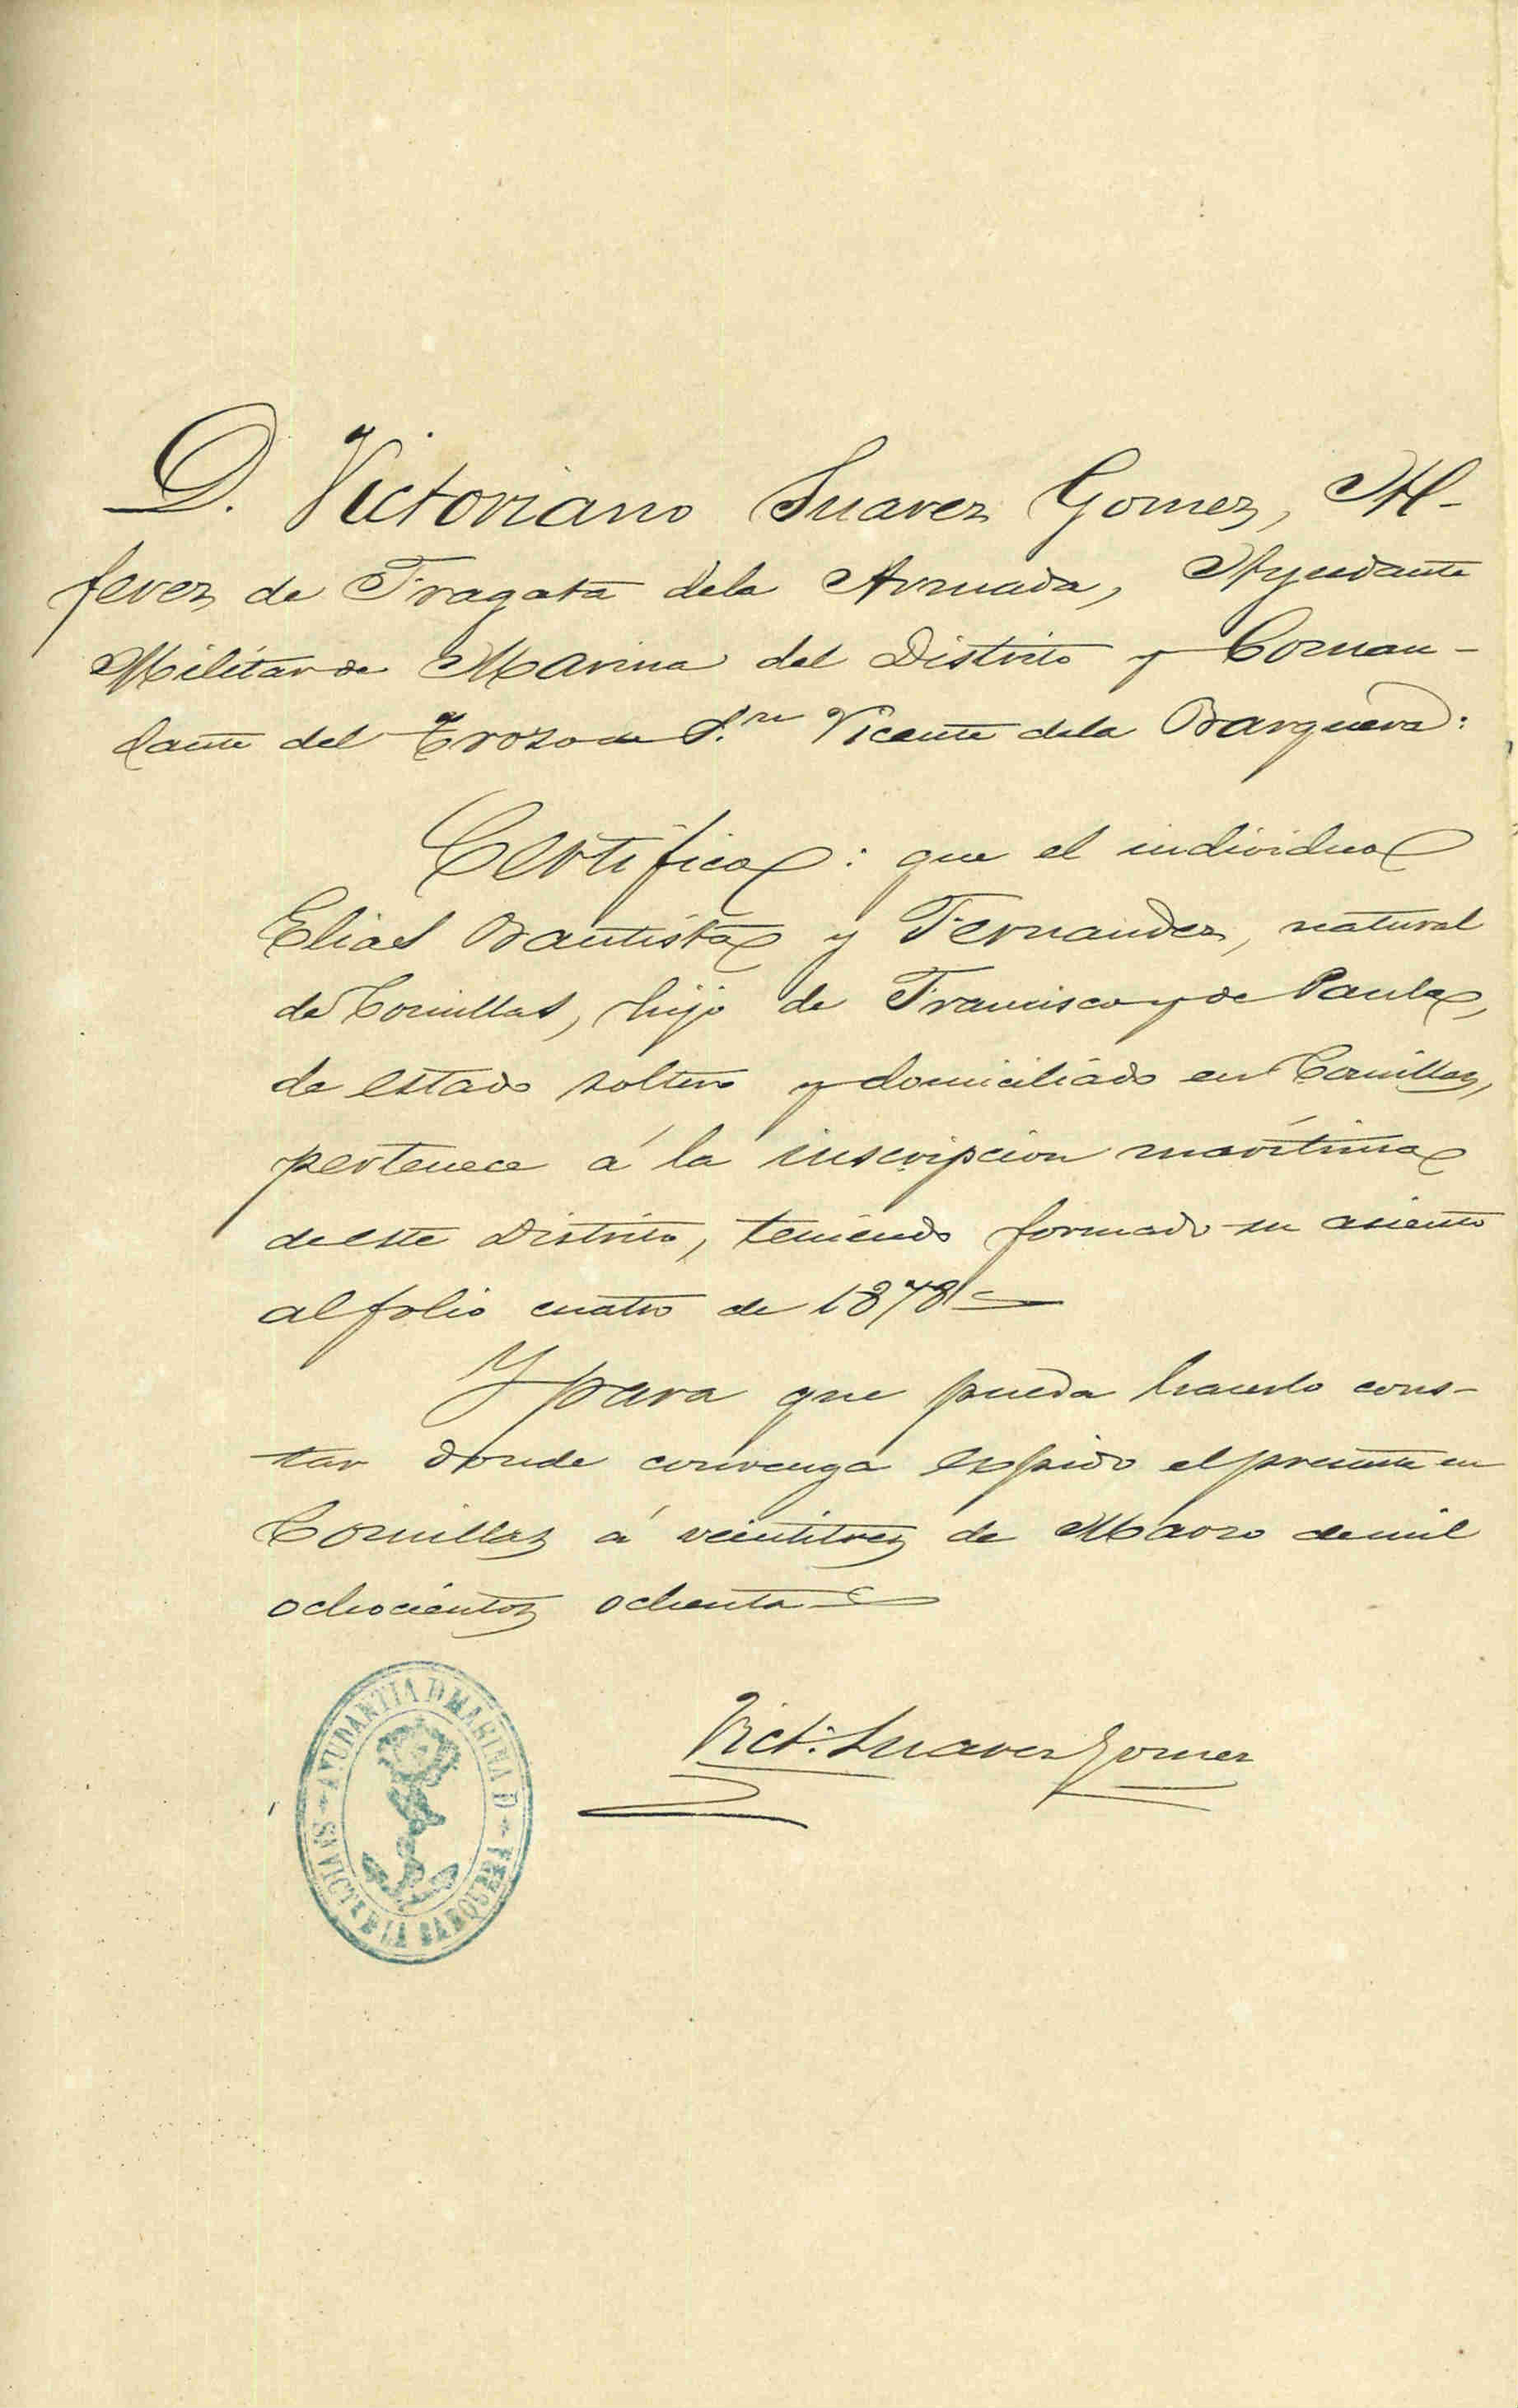 D. Victoriano Suarez Gomez, Al-
ferez de Fragata dela Armada, Ayudante
Militar de Marina del Distrito y Coman-
dante del Trozo de S.n Vicente dela Barquera:
Certifico: que el individuo
Elias Bautista y Fernandez, natural
de Comillas, hijo de Francisco y de Paula,
de estado soltero y domiciliado en Comillas,
pertenece á la inscripcion maritima
de este Distrito, teniendo formado su asiento
al folio cuatro de 1878
Y para que pueda hacerlo cons-
tar donde convenga espido el presente en
Comillas á veintitres de Marzo de mil
ochocientos ochenta
Vict. Suarez Gomez
AYUDANTIA D MARINA D
S. VICTE D LA BARQUERA